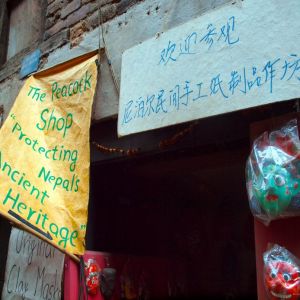 The Peacock
Shop
"Protecting
Nepals
Ancient
Heritage"
欢迎参观
尼泊尔民间手工纸制品作坊
Original
Clay Mask